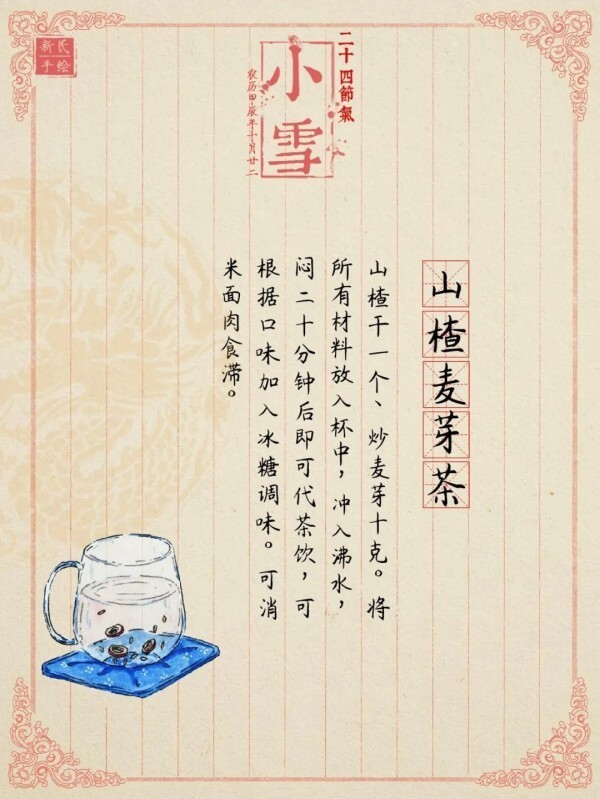 新民
手绘
二十四節氣
小雪
农历甲辰年十月廿二
山楂麦芽茶
山楂干一个、炒麦芽十克。将
所有材料放入杯中，冲入沸水，
闷二十分钟后即可代茶饮，可
根据口味加入冰糖调味。可消
米面肉食滞。